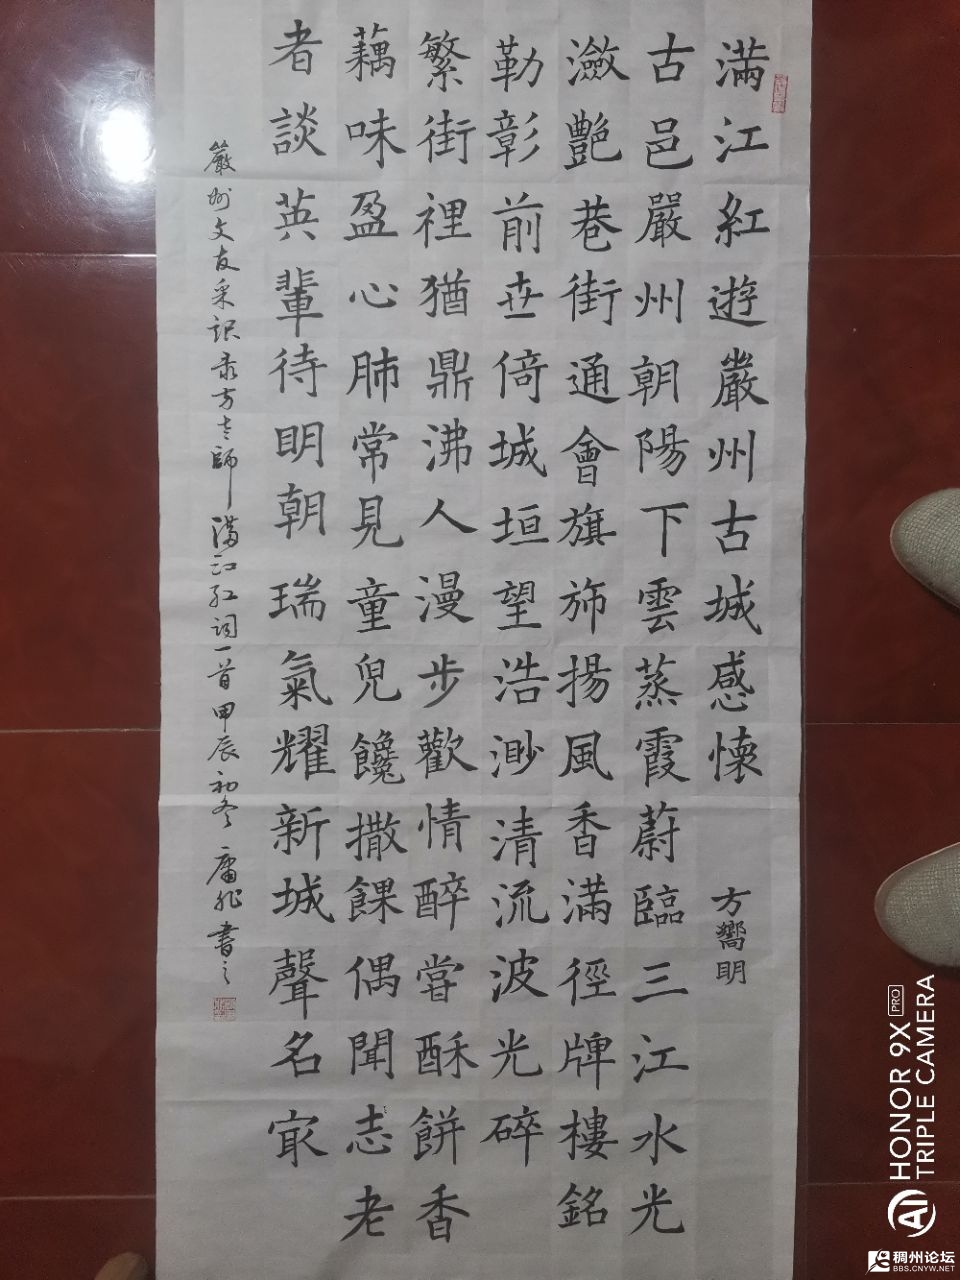 满江紅遊嚴州古城感懷 方嚮明
古邑嚴州朝陽下雲蒸霞蔚臨三江水光
瀲艷巷街通會旗斾揚風香滿徑牌樓銘
勒彰前世倚城垣望浩渺清流波光碎
繁街裡猶鼎沸人漫步歡情醉嘗酥餅香
藕味盈心肺常見童兒饞撒餜偶聞志老
者談英輩待明朝瑞氣耀新城聲名冣
嚴州文友采识录方老師满江红词一首甲辰初冬 庸非書之
HONOR 9X PRO
TRIPLE CAMERA
AI
稠州论坛
BBS.CNYW.NET